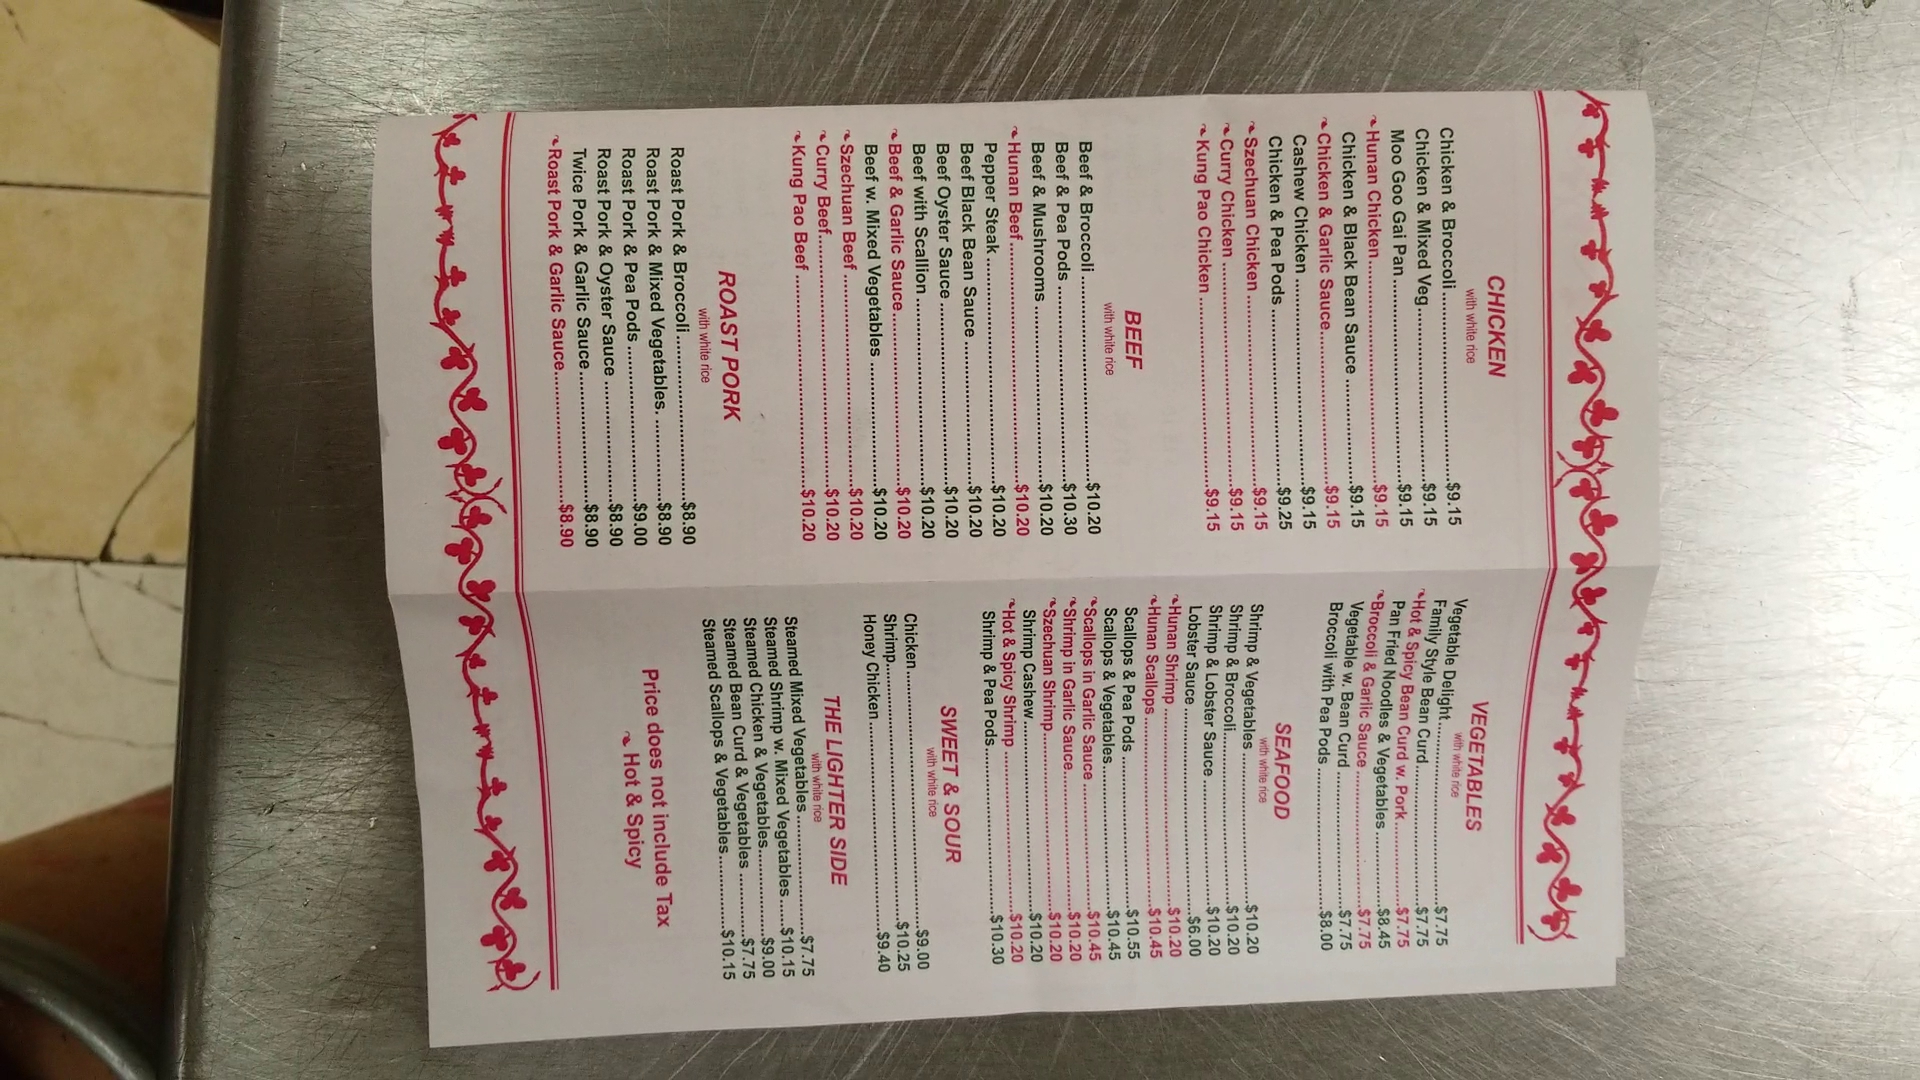 CHICKEN
with white rice
Chicken & Broccoli $9.15
Chicken & Mixed Veg $9.15
Moo Goo Gai Pan $9.15
Hunan Chicken $9.15
Chicken & Black Bean Sauce $9.15
Chicken & Garlic Sauce $9.15
Cashew Chicken $9.15
Chicken & Pea Pods $9.25
Szechuan Chicken $9.15
Curry Chicken $9.15
Kung Pao Chicken $9.15
BEEF
with white rice
Beef & Broccoli $10.20
Beef & Pea Pods $10.30
Beef & Mushrooms $10.20
Hunan Beef $10.20
Pepper Steak $10.20
Beef Black Bean Sauce $10.20
Beef Oyster Sauce $10.20
Beef with Scallion $10.20
Beef & Garlic Sauce $10.20
Beef w. Mixed Vegetables $10.20
Szechuan Beef $10.20
Curry Beef $10.20
Kung Pao Beef $10.20
ROAST PORK
with white rice
Roast Pork & Broccoli $8.90
Roast Pork & Mixed Vegetables $8.90
Roast Pork & Pea Pods $9.00
Roast Pork & Oyster Sauce $8.90
Twice Pork & Garlic Sauce $8.90
Roast Pork & Garlic Sauce $8.90
VEGETABLES
with white rice
Vegetable Delight $7.75
Family Style Bean Curd $7.75
Hot & Spicy Bean Curd w. Pork $7.75
Pan Fried Noodles & Vegetables $8.45
Broccoli & Garlic Sauce $7.75
Vegetable w. Bean Curd $7.75
Broccoli with Pea Pods $8.00
SEAFOOD
with white rice
Shrimp & Vegetables $10.20
Shrimp & Broccoli $10.20
Shrimp & Lobster Sauce $10.20
Lobster Sauce $6.00
Hunan Shrimp $10.20
Hunan Scallops $10.45
Scallops & Pea Pods $10.55
Scallops & Vegetables $10.45
Scallops in Garlic Sauce $10.45
Shrimp in Garlic Sauce $10.20
Szechuan Shrimp $10.20
Shrimp Cashew $10.20
Hot & Spicy Shrimp $10.20
Shrimp & Pea Pods $10.30
SWEET & SOUR
with white rice
Chicken $9.00
Shrimp $10.25
Honey Chicken $9.40
THE LIGHTER SIDE
with white rice
Steamed Mixed Vegetables $7.75
Steamed Shrimp w. Mixed Vegetables $10.15
Steamed Chicken & Vegetables $9.00
Steamed Bean Curd & Vegetables $7.75
Steamed Scallops & Vegetables $10.15
Price does not include Tax
Hot & Spicy